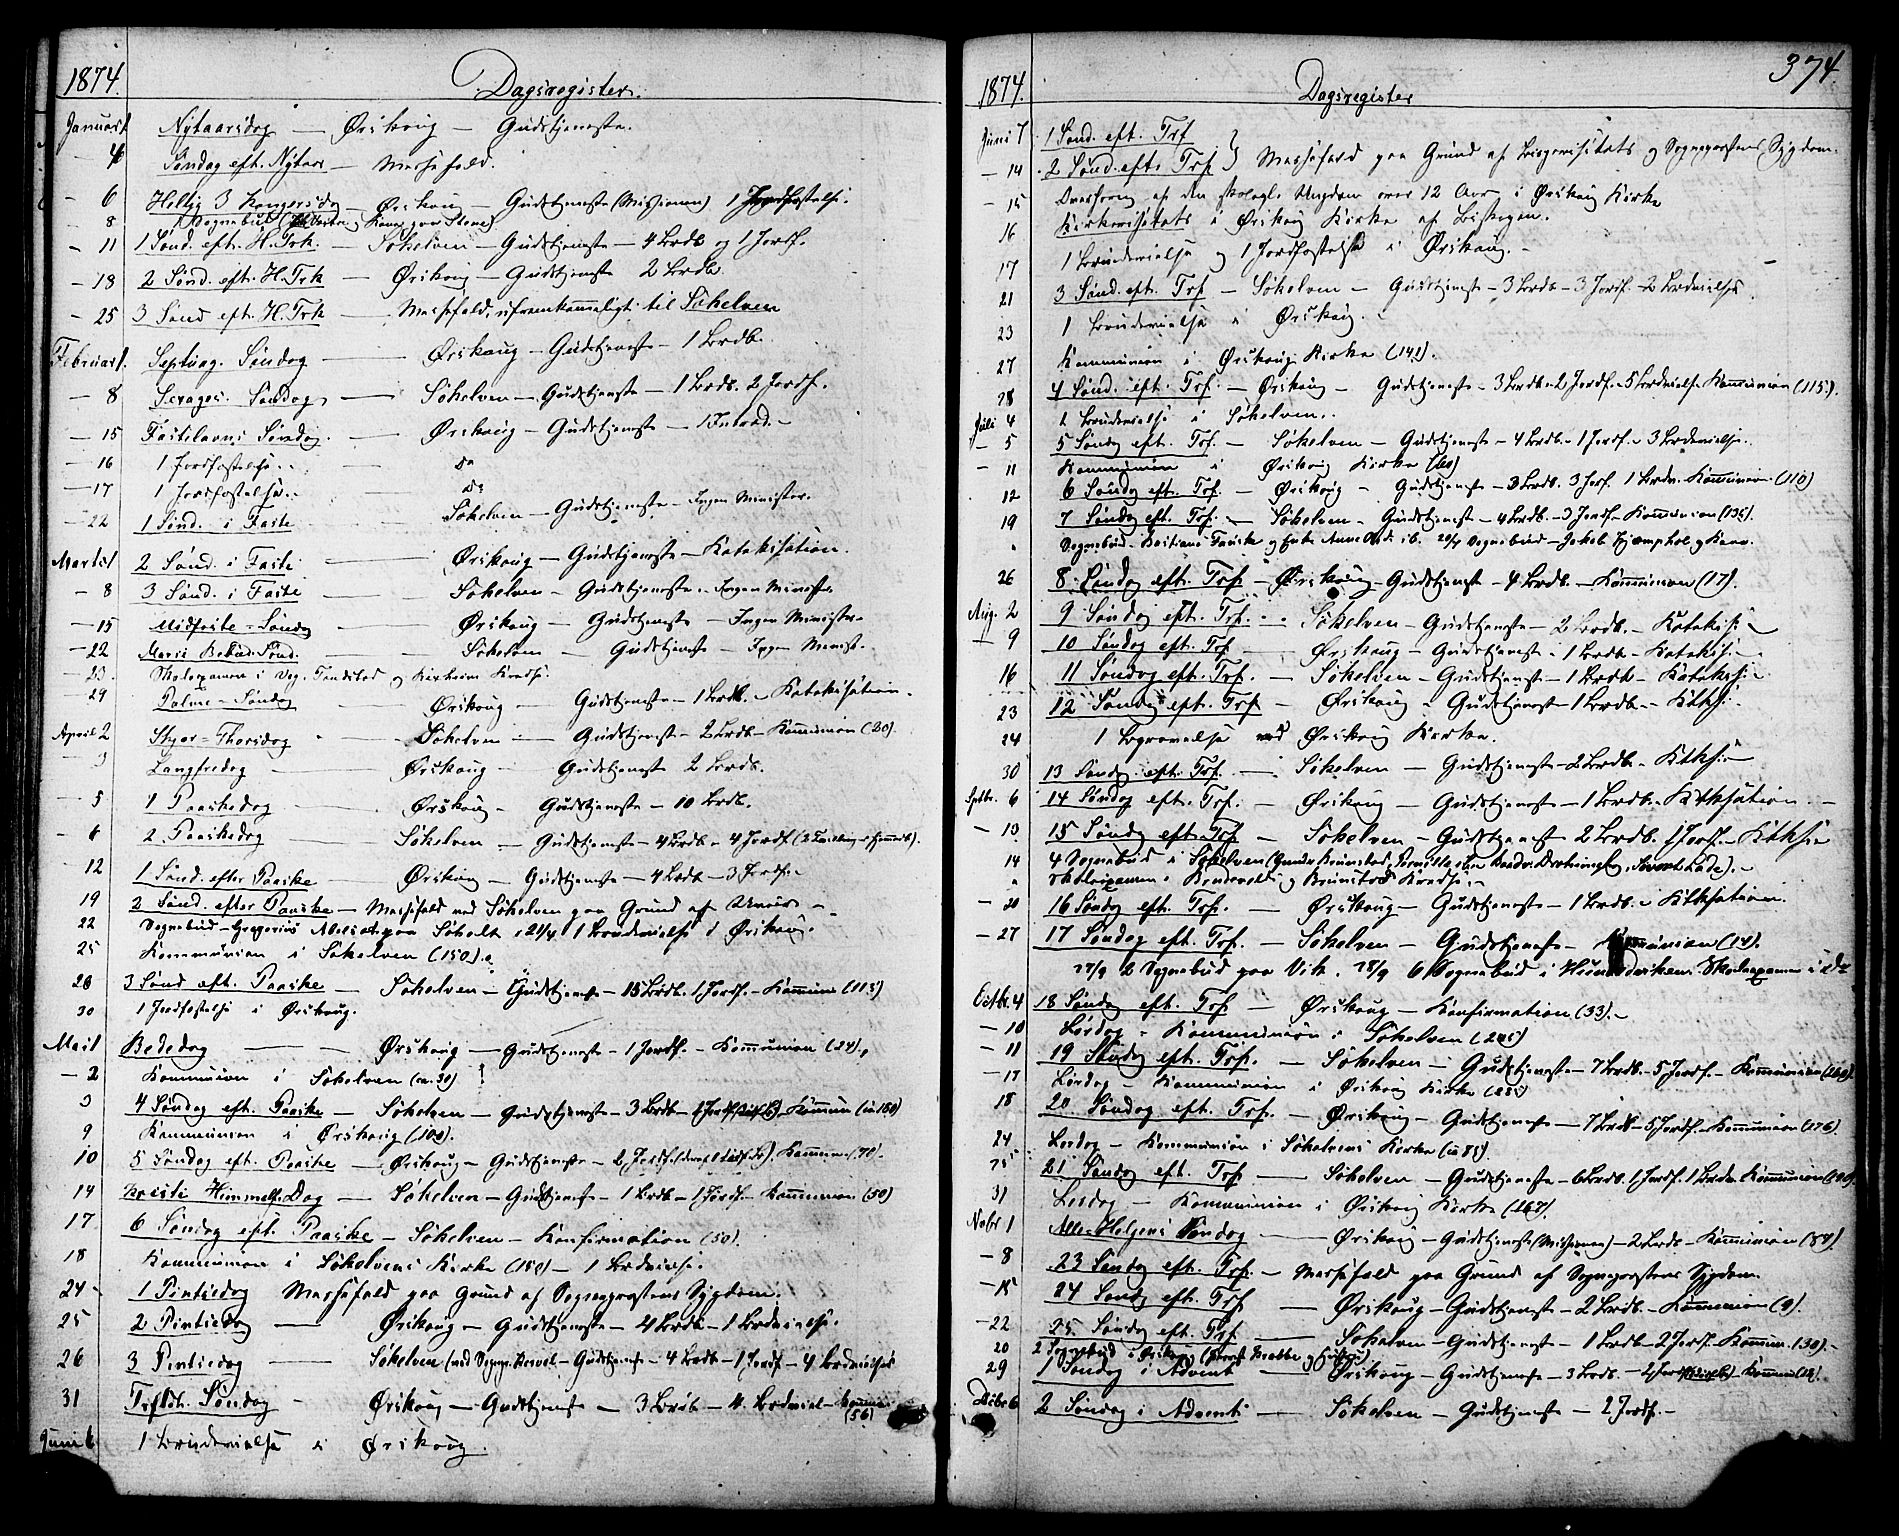 1874. Dagsregister.
Januar 1 Nytaarsdag — Ørskoug — Gudstjeneste.
— 4 Søndag eft. Nytaar — Messefald.
— 6 Hellig 3 Kongersdag Ørskoug — Gudstjeneste (Missionen) 1 Jordfæstelse.
— 8 Sognebud
— 11 1 Sønd. eft. H. Trk. — Søkelven — Gudstjeneste — 4 Brdb og 1 Jordf.
— 18 2 Sønd. eft. H. Trk — Ørskoug — Gudstjeneste 2 Brdb
— 25 3 Sønd eft. H. Trk — Messefald, ufremkommeligt til Søkelven
Februar 1. Septuag. Søndag — Ørskoug — Gudstjeneste — 1 Brdb.
— 8 Sexages. Søndag — Søkelven — Gudstjeneste — 1 Brdb. 2 Jordf.
— 15 Fastelavns Søndag. — Ørskoug — Gudstjeneste — 1 Introd. —
— 16 1 Jordfæstelse. — do
— 17 1 Jordfæstelse. — do
— 22 1 Sønd. i Faste Søkelven — Gudstjeneste — Ingen Minister.
Marts 1 2 Sønd. i Faste — Ørskoug — Gudstjeneste — Katekisation.
— 8 3 Sønd. i Faste — Søkelven — Gudstjeneste — Ingen Minist.
— 15 Midfaste-Søndag — Ørskoug — Gudstjeneste — Ingen Minister
— 22 Mariæ Bebud. Sønd. — Søkelven — Gudstjeneste — Ingen Minist.
— 23. Skoleexamen i Vog. Tandstad og Kredse.
29 Palme-Søndag Ørskoug — Gudstjeneste — 1 Brdb. — Katekisation.
April 2 Skjær-Thorsdag Søkelven — Gudstjeneste — 2 Brdb — Kommunion (20).
— 3 Langfredag — Ørskoug — Gudstjeneste 2 Brdb.
— 5 1 Paaskedag — Ørskoug — Gudstjeneste — 10 Brdb.
— 6 2. Paaskedag — Søkelven — Gudstjeneste — 4 Brdb — 4 Jordf.
12 1 Sønd. efter Paaske Ørskoug — Gudstjeneste — 4 Brdb — 3 Jordf. —
19 2 Sønd. efter Paaske — Messefald ved Søkelven paa Grund af Uveir —
22 Sognebud — Gregorius paa Søholt 21/4 1 Brudevielse i Ørskoug.
25 Kommunion i Søkelven (150).
26 3 Sønd eft. Paaske — Søkelven — Gudstjeneste — 15 Brdb. 1 Jordf. — Kommunion (115)
30 1 Jordfæstelse i Ørskoug.
Mai 1 Bededag — Ørskoug — Gudstjeneste — 1 Jordf. — Kommunion (24),
— 2 Kommunion i Søkelven (ca. 30)
3 4 Søndag eft. Paaske — Søkelven — Gudstjeneste — 3 Brdb — Kommunion (ca 160)
9 Kommunion i Ørskoug (100).
10 5 Søndag eft. Paaske — Ørskoug — Gudstjeneste — Kommunion (70).
14 Kristi Himmelf. Dag — Søkelven — Gudstjeneste — 1 Brdb — 1 Jordf — Kommunion (50)
17 6 Søndag eft. Paaske — Søkelven — Konfirmation (50).
18 Kommunion i Søkelvens Kirke (150) — 1 Brdvielse.
24 — 1 Pintsedag Messefald paa Grund af Sognepræstens Sygdom.
25 2 Pintsedag — Ørskoug — Gudstjeneste — 4 Brdb — 1 Brdvielse.
26 3 Pintsedag — Søkelven — Gudstjeneste — 4 Brdb — 1 Jordf — 4 Brdvielser
31 Trftds. Søndag — Ørskoug — Gudstjeneste — 3 Brdb — 4 Brdviel — Kommun (56)
Juni 6 1 Brudevielse i Ørskoug.
1874. Dagsregister 374.
Juni 7 1 Sønd. eft. Trf
— 14 2 Sønd. eft. Trf } Messefald paa Grund af Bispevisitats og Sognepræstens Sygdom.
— 15 Overhøring af den Ungdom over 12 Aar i Ørskoug Kirke
16 Kirkevisitats i Ørskoug Kirke af Biskopen.
17 1 Brudevielse og 1 Jordfæstelse i Ørskoug. —
21 3 Sønd. eft. Trf — Søkelven — Gudstjeneste — 3 Brdb — 3 Jordf — 2 Brdvielser
23 1 Brudevielse i Ørskoug.
27 Kommunion i Ørskoug Kirke (141).
28 4 Sønd. eft. Trf. — Ørskoug — Gudstjeneste — 3 Brdb — 2 Jordf — 5 Brdvielse Kommunion (115).
Juli 4 1 Brudevielse i Søkelven.
— 5 5 Søndag eft. Trf. — Søkelven — Gudstjeneste — 4 Brdb. — 1 Jordf — 3 Brdvielse.
— 11 Kommunion i Ørskoug Kirke
12 6 Søndag eft. Trf. — Ørskoug — Gudstjeneste — 3 Brdb. 3 Jorf. 1 Brdv. Kommunion (110)
19 7 Søndag eft. Trf. — Søkelven — Gudstjeneste — 4 Brdb. — 3 Jordf — Kommunion (135).
26 8. Søndag eft. Trf — Ørskoug — Gudstjeneste — 4 Brdb — Kommunion (17).
Aug. 2 9 Søndag eft. Trf. Søkelven — Gudstjeneste — 2 Brdb. — Katekis.
— 9 10 Søndag eft. Trf — Ørskoug — Gudstjeneste — 1 Brdb — Katekis. —
16 11 Søndag eft. Trf. — Søkelven — Gudstjeneste — 1 Brdb — Katekis. —
23 12 Søndag eft. Trf — Ørskoug — Gudstjeneste — 1 Brdb — Ktks.
24 1 Begravelse ved Ørskoug Kirke.
30 13 Søndag eft. Trf. — Søkelven — Gudstjeneste — 2 Brdb — Ktks.
Septbr. 6 14 Søndag eft. Trf. Ørskoug — Gudstjeneste — 1 Brdb — Ktksation. —
— 13 15 Søndag eft. Trf — Søkelven — Gudstjeneste 2 Brdb. 1 Jordf — Ktks.
14 4 Sognebud i Søkelven
Skoleexamen i og Brunstad Kreds.
— 20 16 Søndag eft. Trf. — Ørskoug — Gudstjeneste — 1 Brdb — Ktksation.
— 27 17 Søndag eft. Trf. — Søkelven — Gudstjeneste — Kommunion (14).
27/9 2 Sognebud paa Vik. 28/9 6 Sognebud i Skoleexamen i do
Octbr. 4 18 Søndag eft. Trf — Ørskoug — Konfirmation (33). —
— 10 Lørdag — Kommunion i Søkelven
— 11 19 Søndag eft. Trf. — Søkelven — Gudstjeneste — 7 Brdb — 5 Jordf. — Kommunion (160).
— 17 Lørdag — Kommunion i Ørskoug Kirke
18 20 Søndag eft. Trf. — Ørskoug — Gudstjeneste — 7 Brdb — 5 Jordf. — Kommunion (176).
24 Lørdag — Kommunion i Søkelvens Kirke (ca 85).
25 21 Søndag eft. Trf. — Søkelven — Gudstjeneste — 6 Brdb. 1 Jordf. 1 Brdv. Kommunion
31 Lørdag — Kommunion i Ørskoug Kirke (167).
Novbr 1 Alle-Helgens Søndag — Ørskoug — Gudstjeneste (Missionen) — 2 Brdb — Kommunion (84).
— 8 23 Søndag eft. Trf. — Messefald paa Grund af Sognepræstens Sygdom.
— 15 24 Søndag eft. Trf — Ørskoug — Gudstjeneste — 2 Brdb. — Kommunion (9).
— 22 25 Søndag eft. Trf — Søkelven — Gudstjeneste — 1 Brdb — 2 Jordf. Kommun. (30). —
20 2 Sognebud i Ørskoug
29 1 Søndag i Advent — Ørskoug — Gudstjeneste — 3 Brdb — 2 Jordf — Kommun
Decbr 6 2 Søndag i Advent — Søkelven — Gudstjeneste — 2 Jordf. —